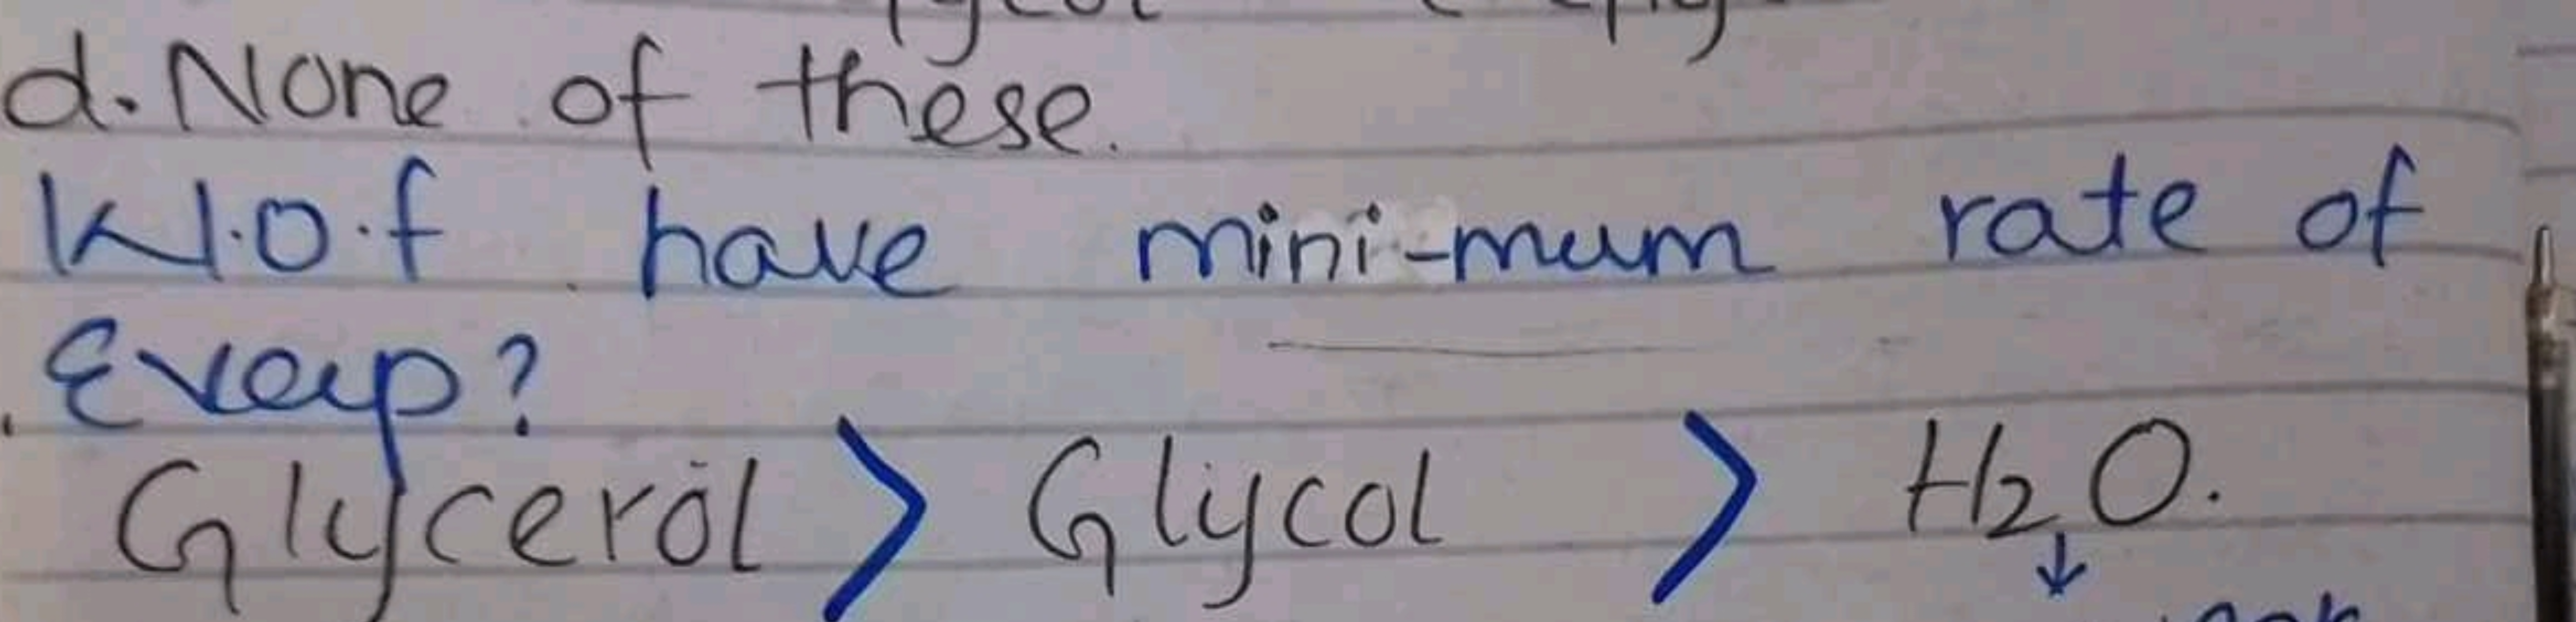 d. None of these.
W.O.f have mini-mum rate of
Evap?
Glycerol > Glycol > H₂O.
↓